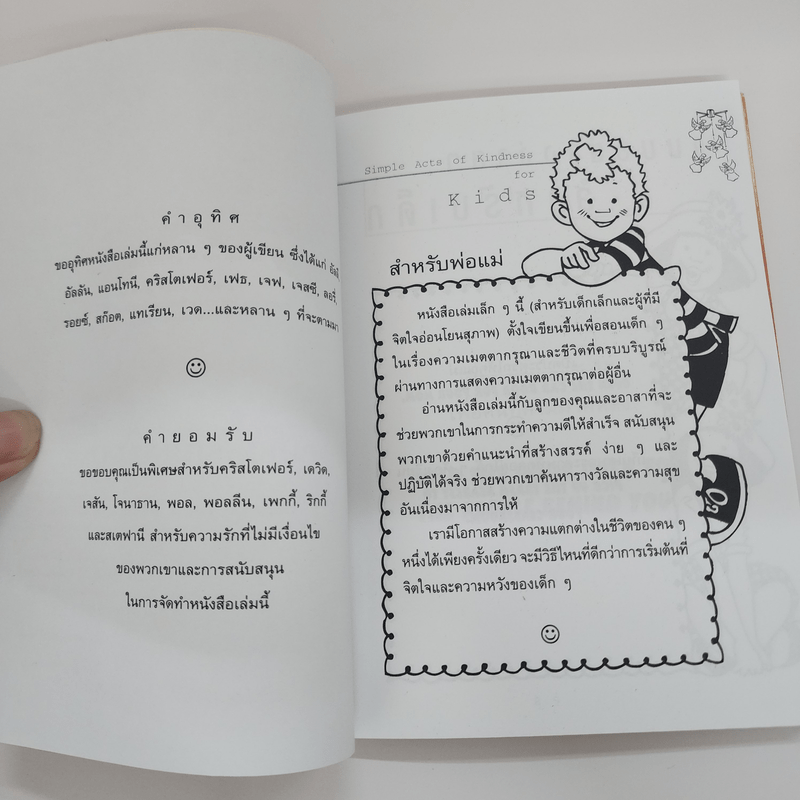 คำอุทิศ
ขออุทิศหนังสือเล่มนี้แก่หลาน ๆ ของผู้เขียน ซึ่งได้แก่
อัลลัน, แอนโทนี, คริสโตเฟอร์, เฟธ, เจฟ, เจสซี, ลอรี,
รอยซ์, สก๊อต, แทเรียน, เวด...และหลาน ๆ ที่จะตามมา
คำยอมรับ
ขอขอบคุณเป็นพิเศษสำหรับคริสโตเฟอร์, เดวิด,
เจสัน, โจนาธาน, พอล, พอลลีน, เพกกี้, ริกกี้
และสเตฟานี สำหรับความรักที่ไม่มีเงื่อนไข
ของพวกเขาและการสนับสนุน
ในการจัดทำหนังสือเล่มนี้
Simple Acts of Kindness
for
Kids
สำหรับพ่อแม่
หนังสือเล่มเล็ก ๆ นี้ (สำหรับเด็กเล็กและผู้ที่มี
จิตใจอ่อนโยนสุภาพ) ตั้งใจเขียนขึ้นเพื่อสอนเด็ก ๆ
ในเรื่องความเมตตากรุณาและชีวิตที่ครบบริบูรณ์
ผ่านทางการแสดงความเมตตากรุณาต่อผู้อื่น
อ่านหนังสือเล่มนี้กับลูกของคุณและอาสาที่จะ
ช่วยพวกเขาในการกระทำความดีให้สำเร็จ สนับสนุน
พวกเขาด้วยคำแนะนำที่สร้างสรรค์ ง่าย ๆ และ
ปฏิบัติได้จริง ช่วยพวกเขาค้นหารางวัลและความสุข
อันเนื่องมาจากการให้
เรามีโอกาสสร้างความแตกต่างในชีวิตของคน ๆ
หนึ่งได้เพียงครั้งเดียว จะมีวิธีไหนที่ดีกว่าการเริ่มต้นที่
จิตใจและความหวังของเด็ก ๆ